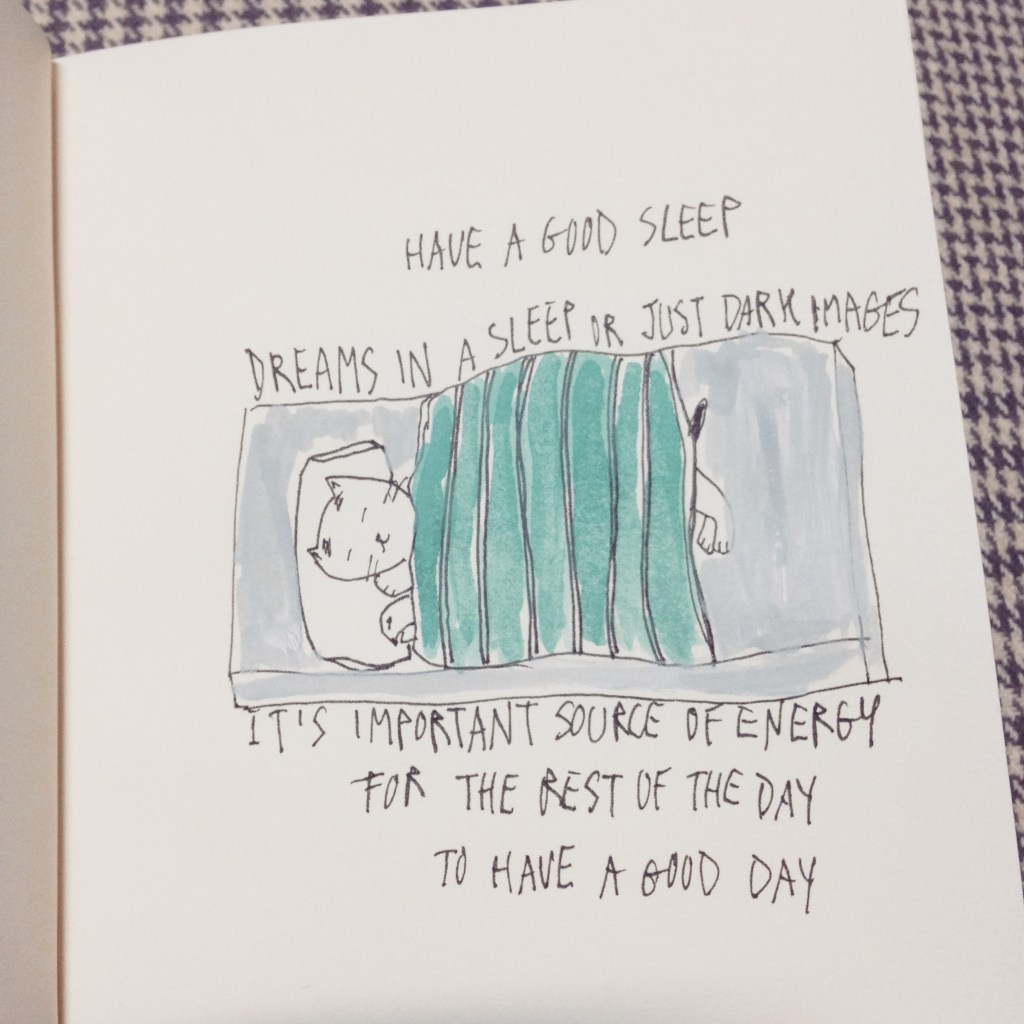 HAVE A GOOD SLEEP
DREAMS IN A SLEEP OR JUST DARK IMAGES
IT'S IMPORTANT SOURCE OF ENERGY
FOR THE REST OF THE DAY
TO HAVE A GOOD DAY